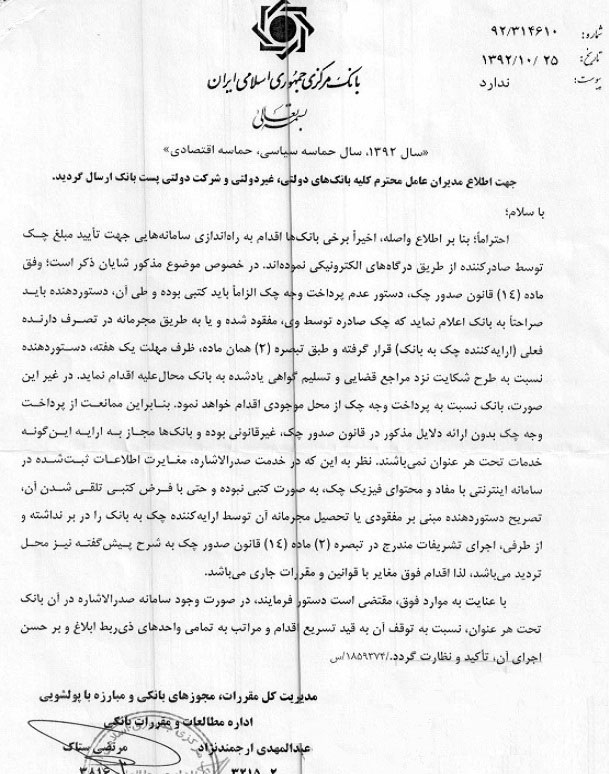 شماره: ۹۲/۳۱۴۶۱۰
تاریخ: ۱۳۹۲/۱۰/۲۵
پیوست: ندارد
بانک مرکزی جمهوری اسلامی ایران
بسمه تعالی
«سال ۱۳۹۲، سال حماسه سیاسی، حماسه اقتصادی»
جهت اطلاع مدیران عامل محترم کلیه بانک‌های دولتی، غیردولتی و شرکت دولتی پست بانک ارسال گردید.
با سلام؛
احتراماً؛ بنا بر اطلاع واصله، اخیراً برخی بانک‌ها اقدام به راه‌اندازی سامانه‌هایی جهت تأیید مبلغ چک
توسط صادرکننده از طریق درگاه‌های الکترونیکی نموده‌اند. در خصوص موضوع مذکور شایان ذکر است؛ وفق
ماده (۱۴) قانون صدور چک، دستور عدم پرداخت وجه چک الزاماً باید کتبی بوده و طی آن، دستوردهنده باید
صراحتاً به بانک اعلام نماید که چک صادره توسط وی، مفقود شده و یا به طریق مجرمانه در تصرف دارنده
فعلی (ارایه‌کننده چک به بانک) قرار گرفته و طبق تبصره (۲) همان ماده، ظرف مهلت یک هفته، دستوردهنده
نسبت به طرح شکایت نزد مراجع قضایی و تسلیم گواهی یادشده به بانک محال‌علیه اقدام نماید. در غیر این
صورت، بانک نسبت به پرداخت وجه چک از محل موجودی اقدام خواهد نمود. بنابراین ممانعت از پرداخت
وجه چک بدون ارائه دلایل مذکور در قانون صدور چک، غیرقانونی بوده و بانک‌ها مجاز به ارایه این‌گونه
خدمات تحت هر عنوان نمی‌باشند. نظر به این که در خدمت صدرالاشاره، مغایرت اطلاعات ثبت‌شده در
سامانه اینترنتی با مفاد و محتوای فیزیک چک، به صورت کتبی نبوده و حتی با فرض کتبی تلقی شدن آن،
تصریح دستوردهنده مبنی بر مفقودی یا تحصیل مجرمانه آن توسط ارایه‌کننده چک به بانک را در بر نداشته و
از طرفی، اجرای تشریفات مندرج در تبصره (۲) ماده (۱۴) قانون صدور چک به شرح پیش‌گفته نیز محل
تردید می‌باشد، لذا اقدام فوق مغایر با قوانین و مقررات جاری می‌باشد.
با عنایت به موارد فوق، مقتضی است دستور فرمایند، در صورت وجود سامانه صدرالاشاره در آن بانک
تحت هر عنوان، نسبت به توقف آن به قید تسریع اقدام و مراتب به تمامی واحدهای ذی‌ربط ابلاغ و بر حسن
اجرای آن، تأکید و نظارت گردد./۱۸۵۹۳۷۴/س
مدیریت کل مقررات، مجوزهای بانکی و مبارزه با پولشویی
اداره مطالعات و مقررات بانکی
عبدالمهدی ارجمندنژاد مرتضی ستاک
۳۲۱۵-۲ ۳۸۱۶